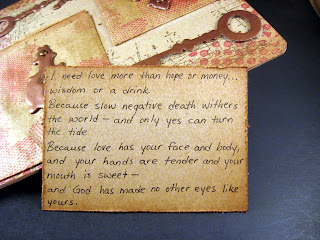 I need love more than hope or money...
wisdom or a drink
Because slow negative death withers
the world — and only yes can turn
the tide
Because love has your face and body,
and your hands are tender and your
mouth is sweet —
and God has made no other eyes like
yours.